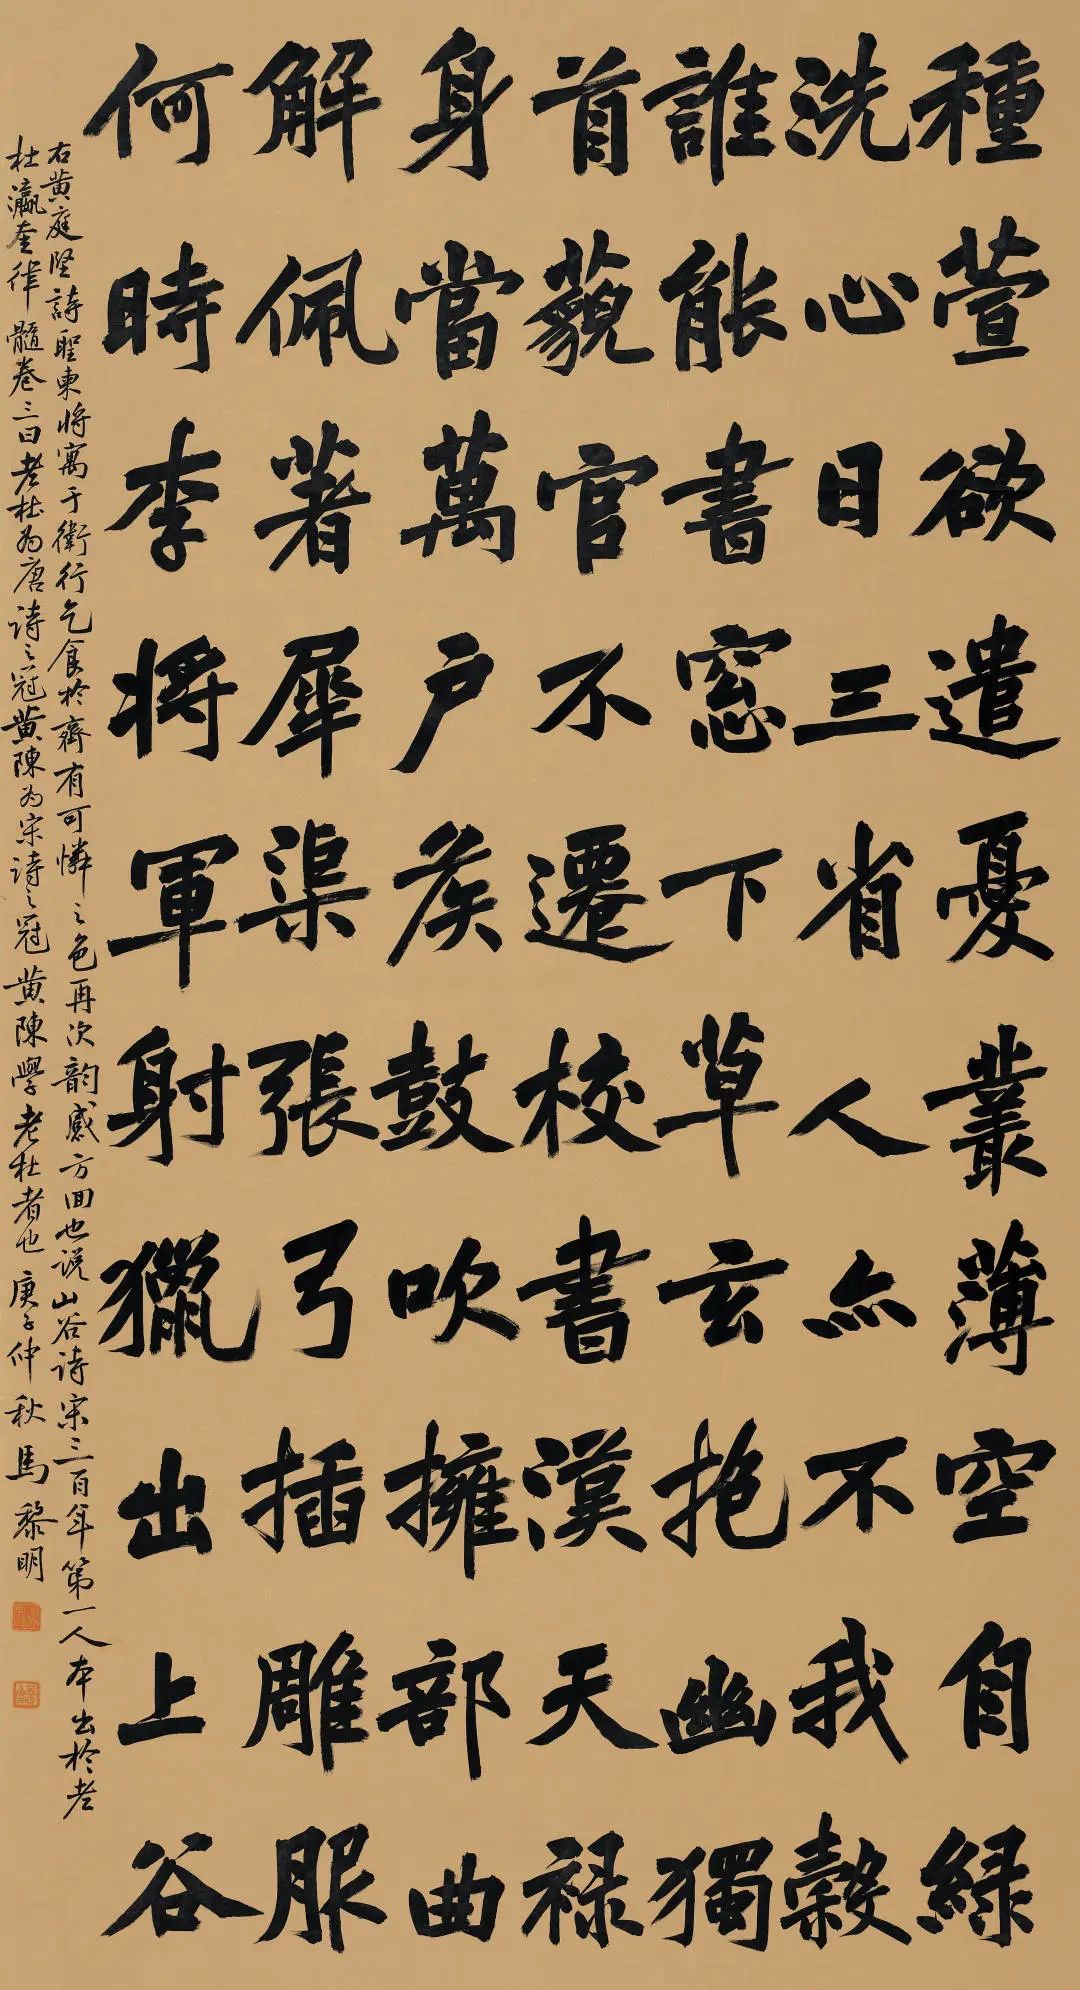 種萱欲遣憂叢薄空自綠
洗心日三省人亦不我穀
誰能書窓下草玄抱幽獨
首藐官不遷校書漢天祿
身當萬户矦鼓吹擁部曲
解佩著犀渠張弓插雕服
何時李將軍射獵出上谷
右黄庭堅詩聖東將寓于衛行乞食於齊有可憐之色再次韵感方回也説山谷诗宋三百年第一人本出於老
杜瀛奎律髓卷三曰老杜为唐诗之冠黄陳为宋诗之冠黄陳學老杜者也庚子仲秋馬黎明